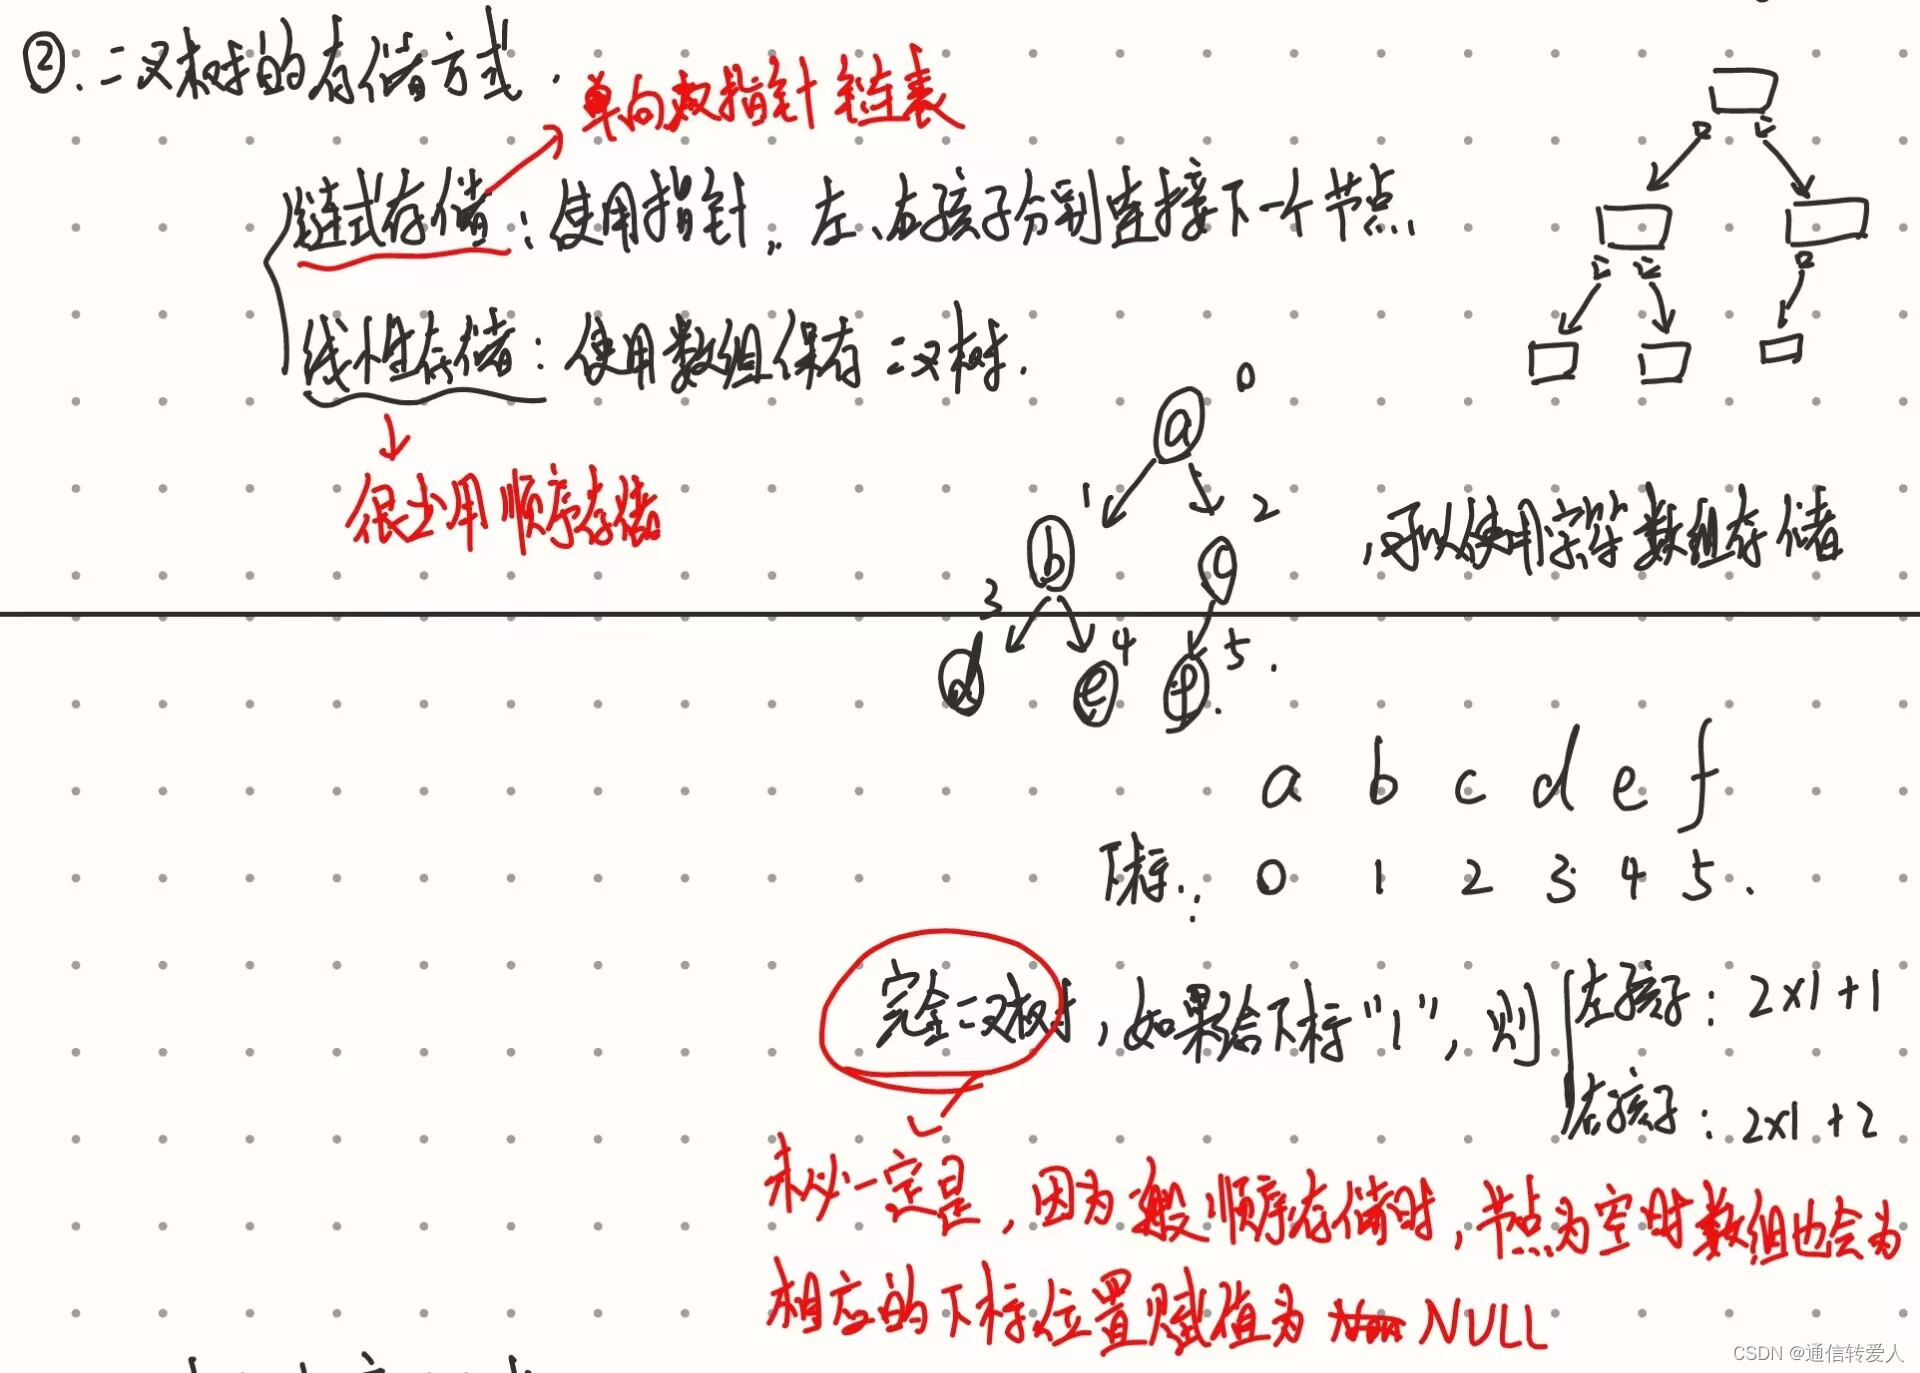 ②. 二叉树的存储方式.
单向双指针链表
链式存储: 使用指针, 左、右孩子分别连接下一个节点.
线性存储: 使用数组保存二叉树.
很少用顺序存储
a 0
1 2
b c
, 可以使用字符数组存储
3 4 5.
d e f.
a b c d e f
下标: 0 1 2 3 4 5.
完全二叉树, 如果给下标“1”, 则
左孩子: 2x1+1
右孩子: 2x1+2
未必一定是, 因为一般顺序存储时, 节点为空时数组也会为
相应的下标位置赋值为 NULL
CSDN @通信转爱人